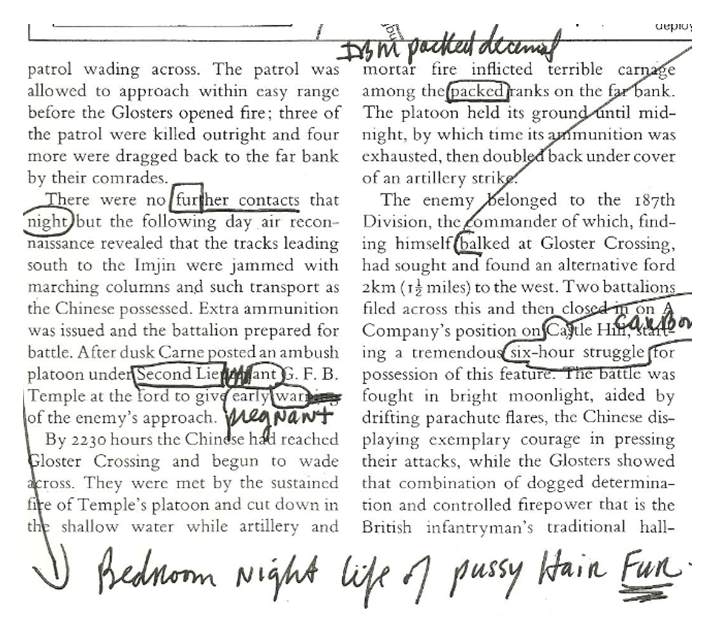 deploy
IBM packed decimal
patrol wading across. The patrol was
allowed to approach within easy range
before the Glosters opened fire; three of
the patrol were killed outright and four
more were dragged back to the far bank
by their comrades.
There were no further contacts that
night but the following day air recon-
naissance revealed that the tracks leading
south to the Imjin were jammed with
marching columns and such transport as
the Chinese possessed. Extra ammunition
was issued and the battalion prepared for
battle. After dusk Carne posted an ambush
platoon under Second Lieutenant G. F. B.
Temple at the ford to give early warning
of the enemy's approach.
pregnant
By 2230 hours the Chinese had reached
Gloster Crossing and begun to wade
across. They were met by the sustained
fire of Temple's platoon and cut down in
the shallow water while artillery and
mortar fire inflicted terrible carnage
among the packed ranks on the far bank.
The platoon held its ground until mid-
night, by which time its ammunition was
exhausted, then doubled back under cover
of an artillery strike.
The enemy belonged to the 187th
Division, the commander of which, find-
ing himself balked at Gloster Crossing,
had sought and found an alternative ford
2km (1½ miles) to the west. Two battalions
filed across this and then closed in on A
Company's position on Castle Hill, start-
carbon
ing a tremendous six-hour struggle for
possession of this feature. The battle was
fought in bright moonlight, aided by
drifting parachute flares, the Chinese dis-
playing exemplary courage in pressing
their attacks, while the Glosters showed
that combination of dogged determina-
tion and controlled firepower that is the
British infantryman's traditional hall-
Bedroom Night life of pussy Hair Fur.